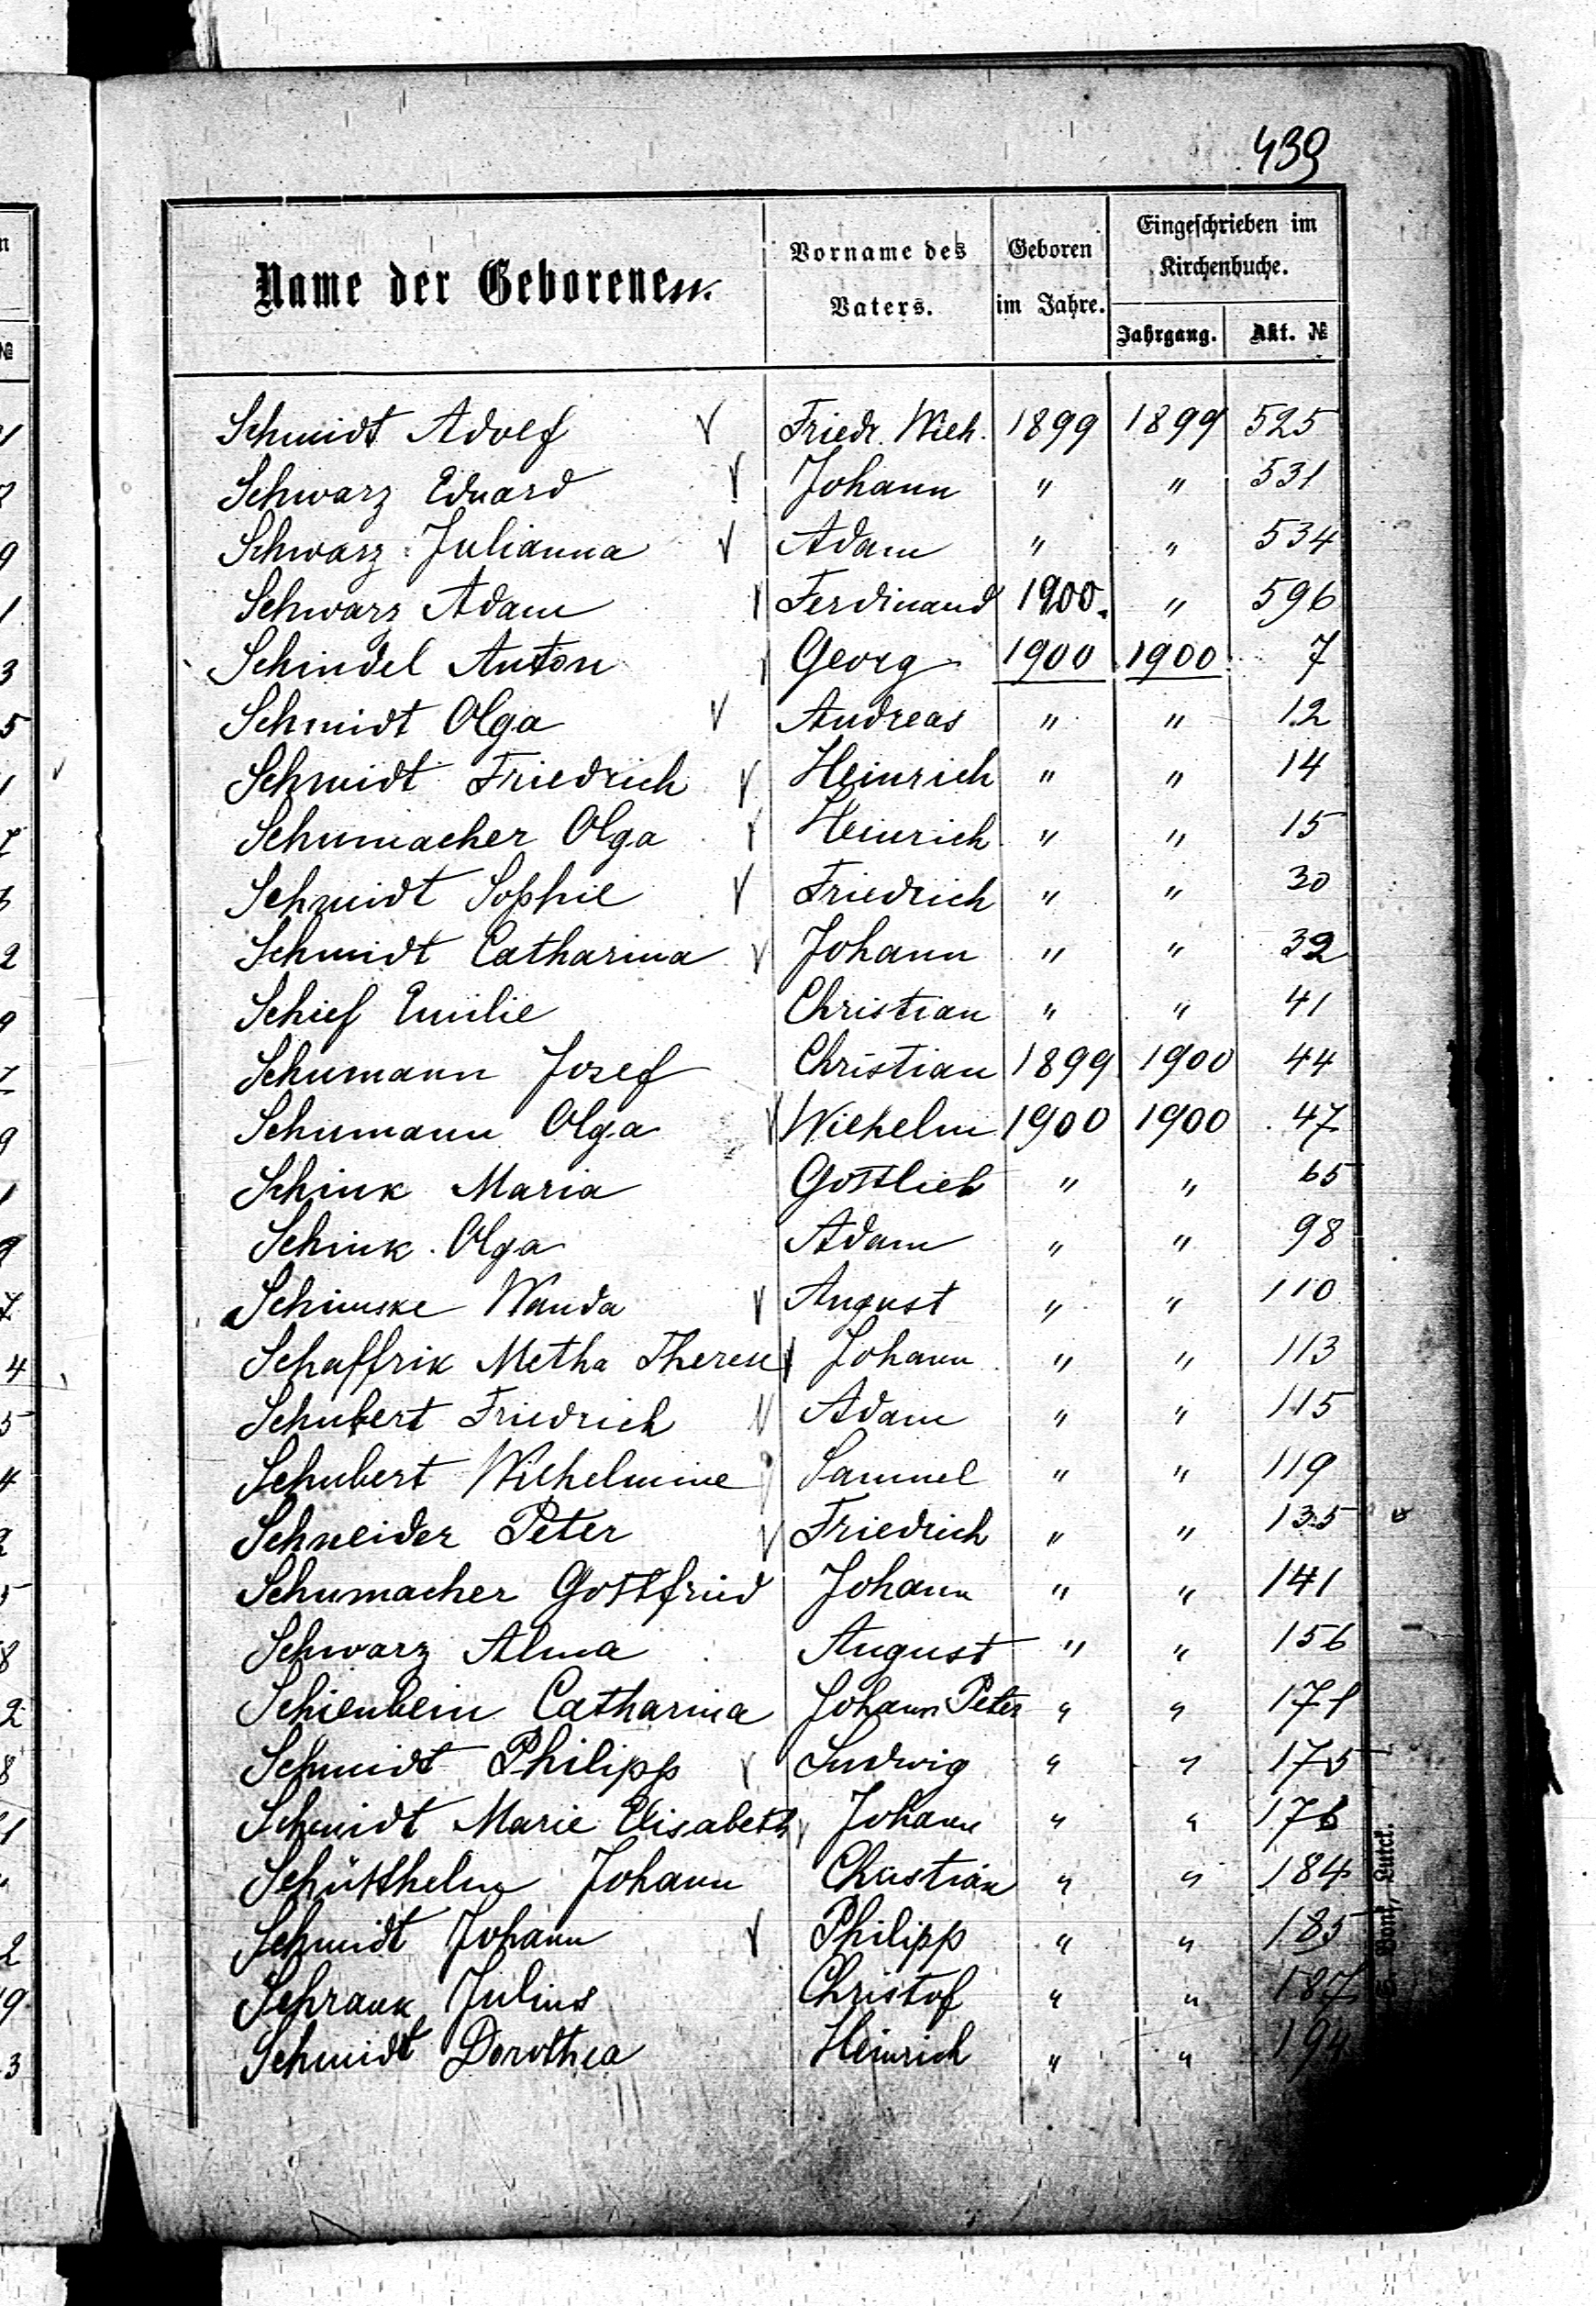 439
Name der Geborenen.
Vorname des Vaters.
Geboren im Jahre.
Eingeschrieben im Kirchenbuche.
Jahrgang.
Akt. №
Schmidt Adolf √ Friedr. Wilh. 1899 1899 525
Schwarz Eduard √ Johann " " 531
Schwarz Julianna √ Adam " " 534
Schwarz Adam √ Ferdinand 1900. " 596
Schindel Anton √ Georg 1900 1900 7
Schmidt Olga √ Andreas " " 12
Schmidt Friedrich √ Heinrich " " 14
Schumacher Olga √ Heinrich " " 15
Schmidt Sophie √ Friedrich " " 30
Schmidt Catharina √ Johann " " 32
Schief Emilie Christian " " 41
Schumann Josef Christian 1899 1900 44
Schumann Olga √ Wilhelm 1900 1900 47
Schink Maria Gottlieb " " 65
Schink Olga Adam " " 98
Schimske Wanda √ August " " 110
Schaffrik Metha Therese √ Johann " " 113
Schubert Friedrich √ Adam " " 115
Schubert Wilhelmine √ Samuel " " 119
Schneider Peter √ Friedrich " " 135
Schumacher Gottfried Johann " " 141
Schwarz Alma August " " 156
Schienbein Catharina Johann Peter " " 171
Schmidt Philipp √ Ludwig " " 175
Schmidt Marie Elisabeth √ Johann " " 176
Schütthelm Johann Christian " " 184
Schmidt Johann √ Philipp " " 185
Schrank Julius Christof " " 187
Schmidt Dorothea Heinrich " " 194